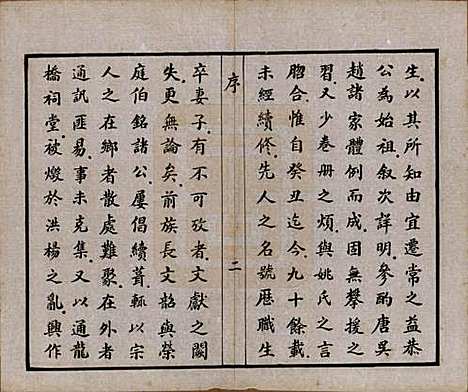 生以其所知由宜遷常之益恭
公為始祖叙次詳明參酌唐吳
趙諸家體例而成固無擊援之
習又少卷册之煩與姚氏之言
脗合惟自癸丑迄今九十餘載
未經續修先人之名號歷職生
序
二
卒妻子有不可攷者文獻之闕
失更無論矣前族長文韶與榮
庭伯銘諸公屢倡續葺輒以宗
人之在鄉者散處難聚在外者
通訊匪易事未克集又以通龍
橋祠堂被燬於洪楊之亂興作